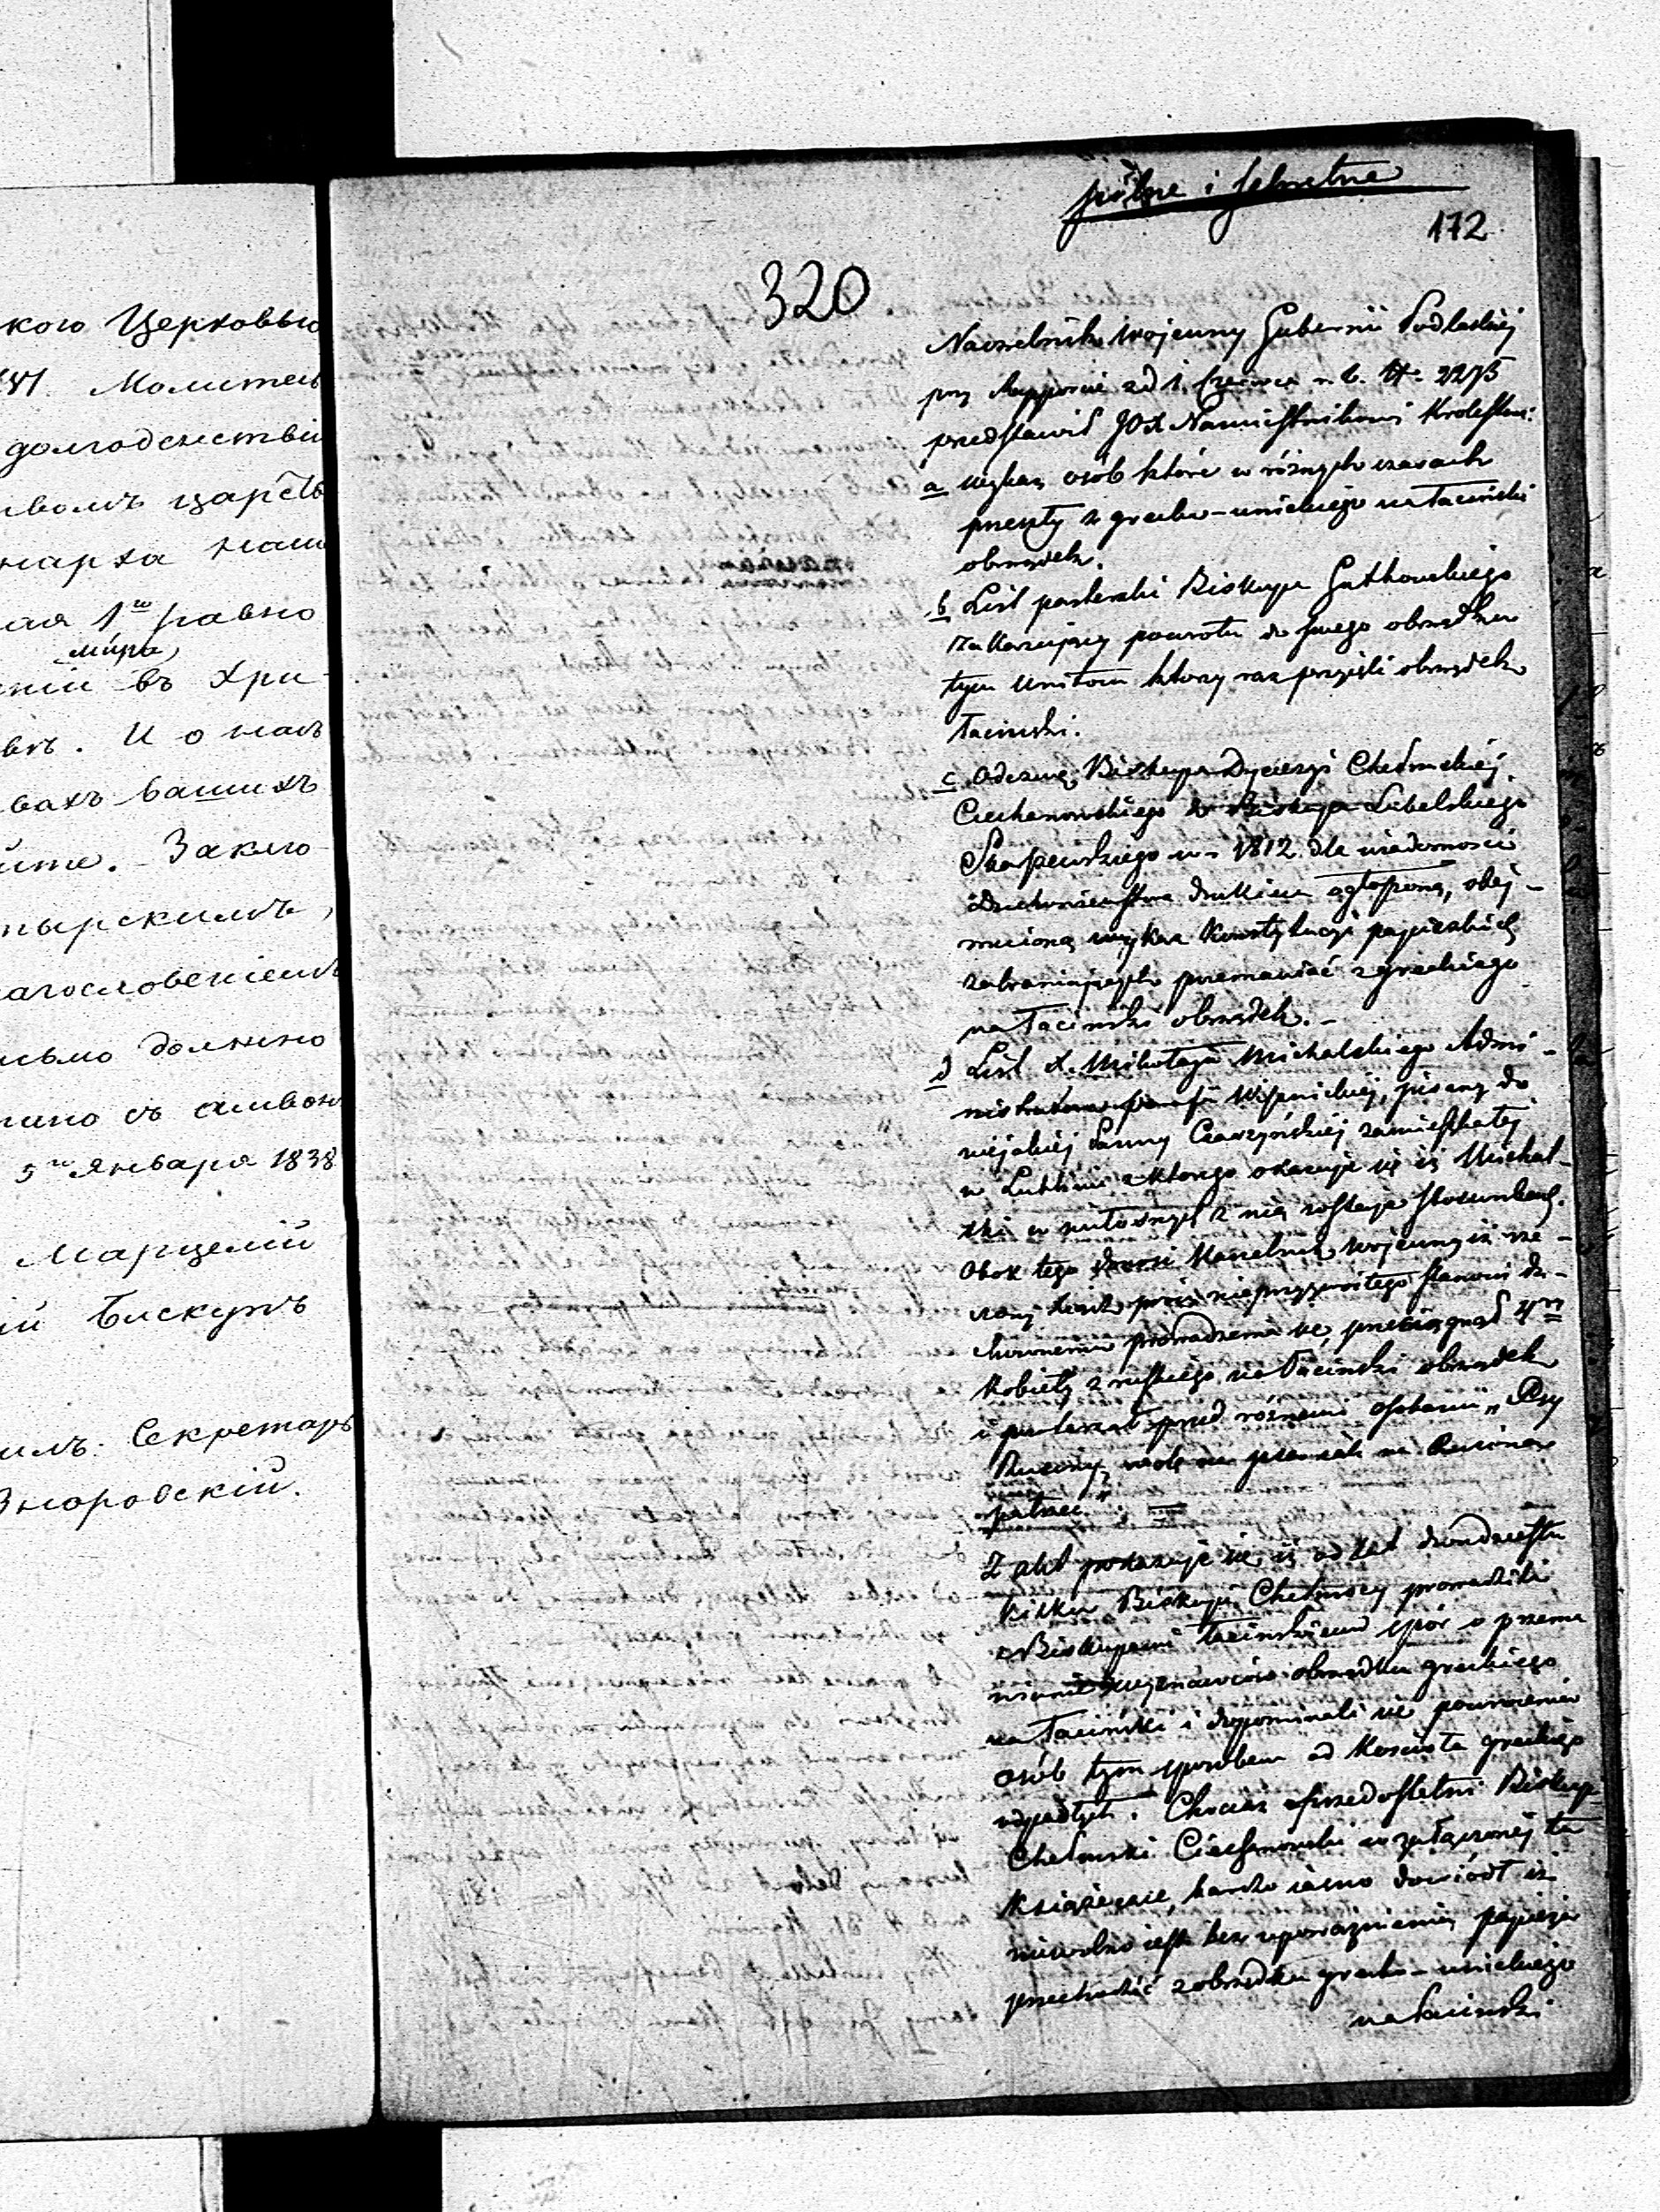 кого Церковью
1841. Молитесь
долгоденствіи
царств
нарха наш
ая 1го равно
мира,
ніи въ Хри-
вѣ. И о насъ
вахъ вашихъ
йте. Заклю-
тырскимъ,
агословеніемъ
исьмо должно
тано съ амвон
5го Января 1838
Марцелій
ій Бискупъ
илъ: Секретарь
Згоровскій.
pilne i sekretne
172
320
Naczelnik Wojenny Gubernii Podlaskiej
przy Rapporcie z d. 1. Czerwca r. b. No 2275
przedstawił JOX Namiestnikowi Królestwa:
a Wykaz osób które w różnych czasach
przeszły z greko-unickiego na łaciński
obrządek.
b List pasterski Biskupa Gutkowskiego
zakazujący powrotu do swego obrządku
tym Unitom którzy raz przyjęli obrządek
łaciński.
c Odezwę Biskupa Dyecezyi Chełmskiej
Ciechanowskiego do Biskupa Lubelskiego
Skarszewskiego w r. 1812 dla wiadomości
Duchowieństwa drukiem ogłoszoną, obej-
mującą wykaz Konstytucyi papiezkich
zabraniających przemawiać z greckiego
na łaciński obrządek.-
d List X. Mikołaja Michalskiego Admi-
nistratora parafii Wisznickiej, pisany do
niejakiej Panny Czarzyńskiej zamieszkałej
w Lublinie z którego okazuje się iż Michal-
ski w miłosnych z nią zostaje stosunkach.
Obok tego donosi Naczelnik Wojenny iż rze-
czony Xiądz prócz nieprzyzwoitego stanowi du-
chownemu prowadzenia się, przeciągnął 4ry
Kobiety z ruskiego na łaciński obrządek
i powtarzał przed różnemi osobami „Psy
Rusiny, wolę na na Rusinow
patrzeć".
Z akt pokazuje się iż od lat dwudziestu
kilku Biskupi Chełmscy prowadzili
z Biskupami łacińskiemi spór o przema-
wianie wyznawców obrządku greckiego
na łaciński i dopominali się powrócenia
osób tym sposobem od Kościoła greckiego
odpadłych. Chociaż przedostatni Biskup
Chełmski Ciechanowski w załączonej tu
Książeczce, bardzo jasno dowiódł iż
niewolno jest bez upoważnienia papieża
przechodzić z obrządku greko-unickiego
na łaciński